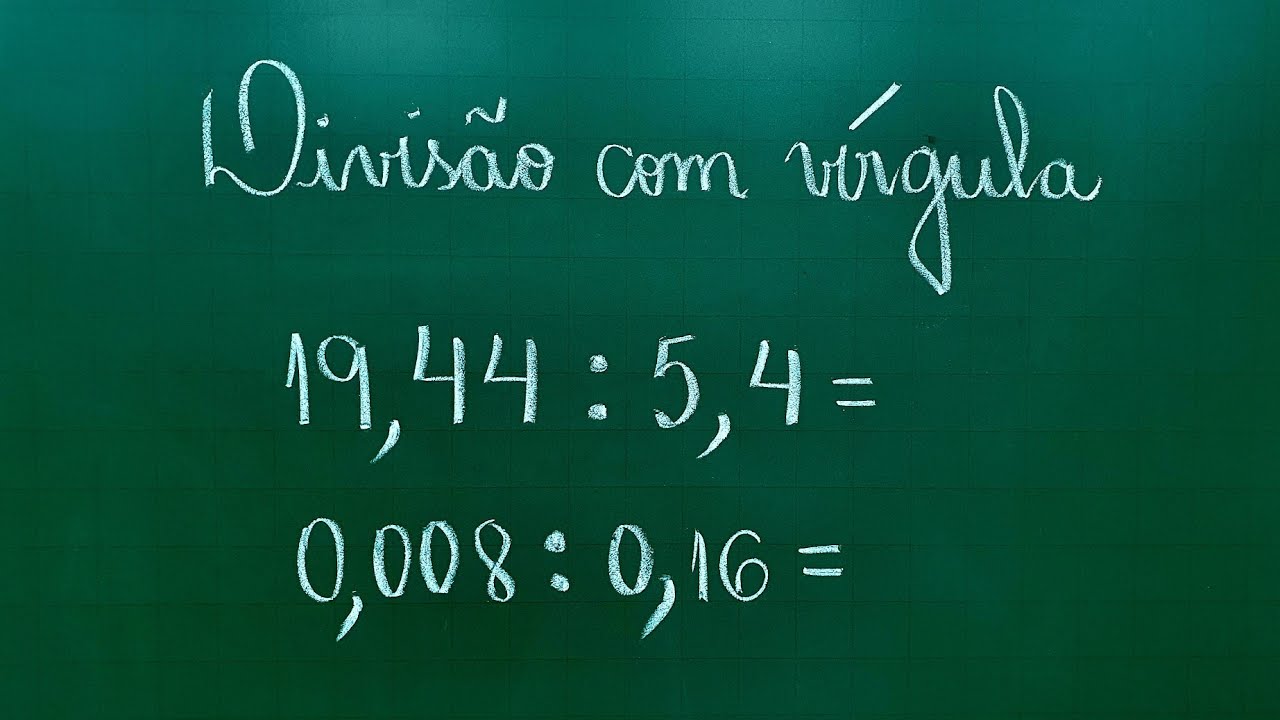 Divisão com vírgula
19,44 : 5,4 =
0,008 : 0,16 =